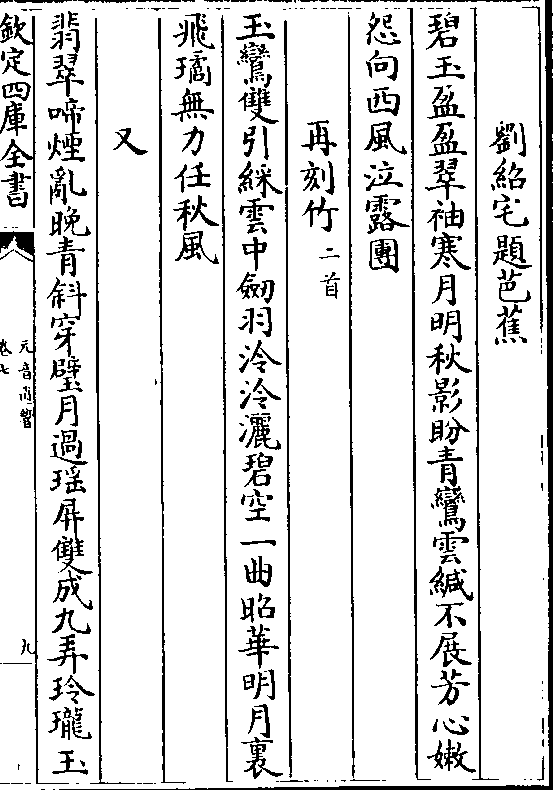 劉紹宅題芭蕉
碧玉盈盈翠袖寒月明秋影盼青鸞雲緘不展芳心嫩
怨向西風泣露團
再刻竹二首
玉鸞雙引綵雲中劒羽泠泠灑碧空一曲昭華明月裏
飛璚無力任秋風
又
翡翠啼煙亂晚青斜穿璧月過瑶屏雙成九弄玲瓏玉
欽定四庫全書
卷七
九